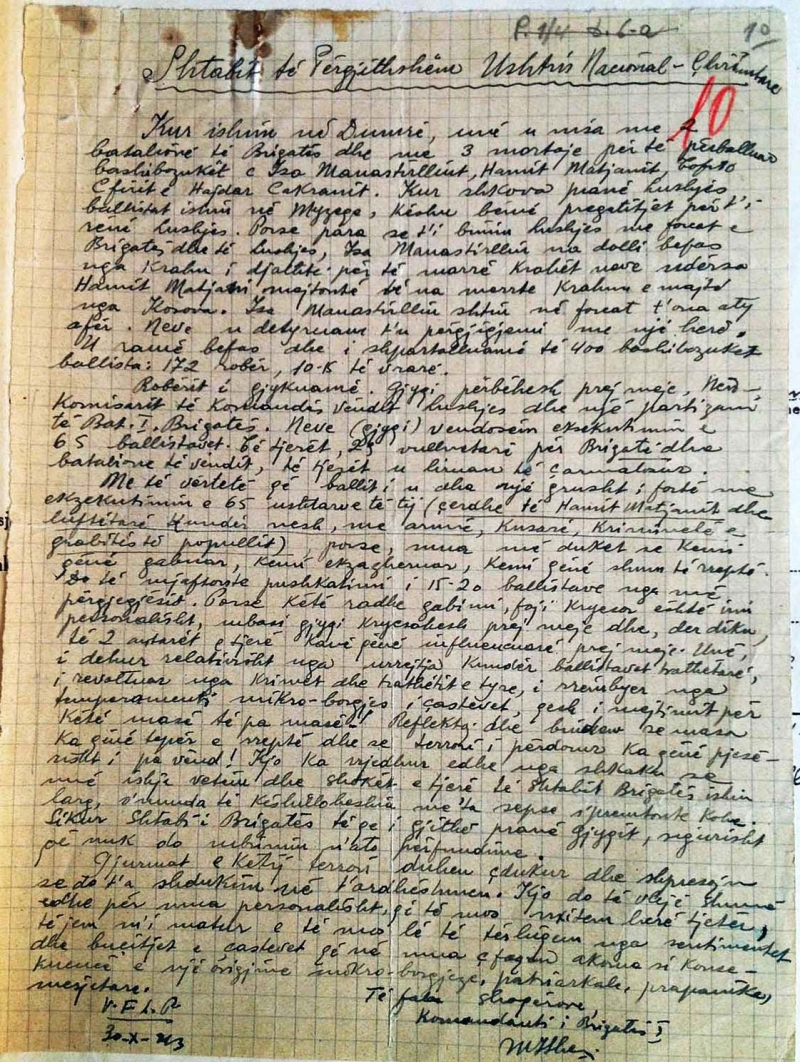 P. 1/4 D. 6-a
10
Shtabit të Përgjithshëm Ushtris Nacional-Çlirimtare
10
Kur ishim në Dumre, unë u nisa me 2
batalione të Brigatës dhe me 3 mortaje për të përballuar
bashibozukët e Isa Manastirlliut, Hamit Matjanit,
Cfirit e Hajdar Cakranit. Kur shkova pranë Lushjes
ballistat ishin në Myzeqe, kështu bëmë pregatitjet për t'i
rënë Lushjes. Porse para se t'i binim Lushjes me forcat e
Brigatës dhe të Lushjes, Isa Manastirlliu na dolli befas
nga Krahu i djathtë për të marrë Krahët neve ndërsa
Hamit Matjani mejtonte të na merrte Krahun e majtë
nga Kosova. Isa Manastirlliu shtiu në forcat t'ona aty
afër. Neve u detyruam t'u përgjigjemi me një herë.
U ramë befas dhe i shpartalluamë të 400 bashibozukët
ballista: 172 robër, 10-15 të vrarë.
Robërit i gjykuamë. Gjyqi përbëhesh prej meje, Nën-
Komisarit të Komandës vëndit Lushjes dhe një partizani
të Bat. I. Brigatës. Neve (gjyqi) vendosëm eksekutimin e
65 ballistavet. Të tjerët, 25 vullnetarë për Brigatë dhe
batalione të vëndit, të tjerët u liruan të çarmatosur.
Me të vërtetë që ballit i u dha një grusht i fortë me
ekzekutimin e 65 ushtarve të tij (çerdhe të Hamit Matjanit dhe
luftëtarë kundër nesh, me armë, Kusarë, Kriminelë e
grabitës të popullit), porse, mua më duket se Kemi
qënë gabuar, Kemi ekzagjeruar, Kemi qënë shum të rreptë.
Do të mjeftonte pushkatimi i 15-20 ballistave nga më
përgjegjësit. Porse këtë radhe gabimi, faji Kryesor është imi
personalisht, mbasi gjyqi Kryesohesh prej meje dhe, der diku,
të 2 antarët e tjerë Kanë qënë influencuarë prej meje. Unë,
i dehur relativisht nga urrejtja Kundër ballistavet trathëtarë,
i revoltuar nga Krimet dhe trathëtit e tyre, i rrëmbyer nga
temperamenti mikro-borgjes i çastëvet, qesh i mejtimit për
Këtë masë të pa masë! Reflektoj dhe bindem se masa
Ka qënë tepër e rreptë dhe se terrori i përdorur Ka qënë pjesë-
risht i pa vënd! Kjo Ka rrjedhur edhe nga shkaku se
unë ishja vetëm dhe shokët e tjerë të Shtabit Brigatës ishin
larg, s'munda të Këshillohesha me'ta sepse s'premtonte Koha.
Sikur Shtabi i Brigatës të qe i gjithë pranë Gjyqit, sigurisht
që nuk do mbrrinim n'ato përfundime.
Gjurmat e Ketij terrori duhen çdukur dhe shpresojm
se do t'a shdukim në t'ardhëshmen. Kjo do të vlejë shumë
edhe për mua personalisht, që të mos nxitem herë tjetër,
të jem m'i matur e të mos lë të tërhiqem nga sentimentet
dhe bucitjet e çastevet që në mua çfaqen akoma si Konse-
kuencë e një origjine mikro-borgjeze, patriarkale, prapanike,
mesjetare.
Të fala shoqërore,
Komandanti i Brigatës I
V.F.L.P
30-X-943